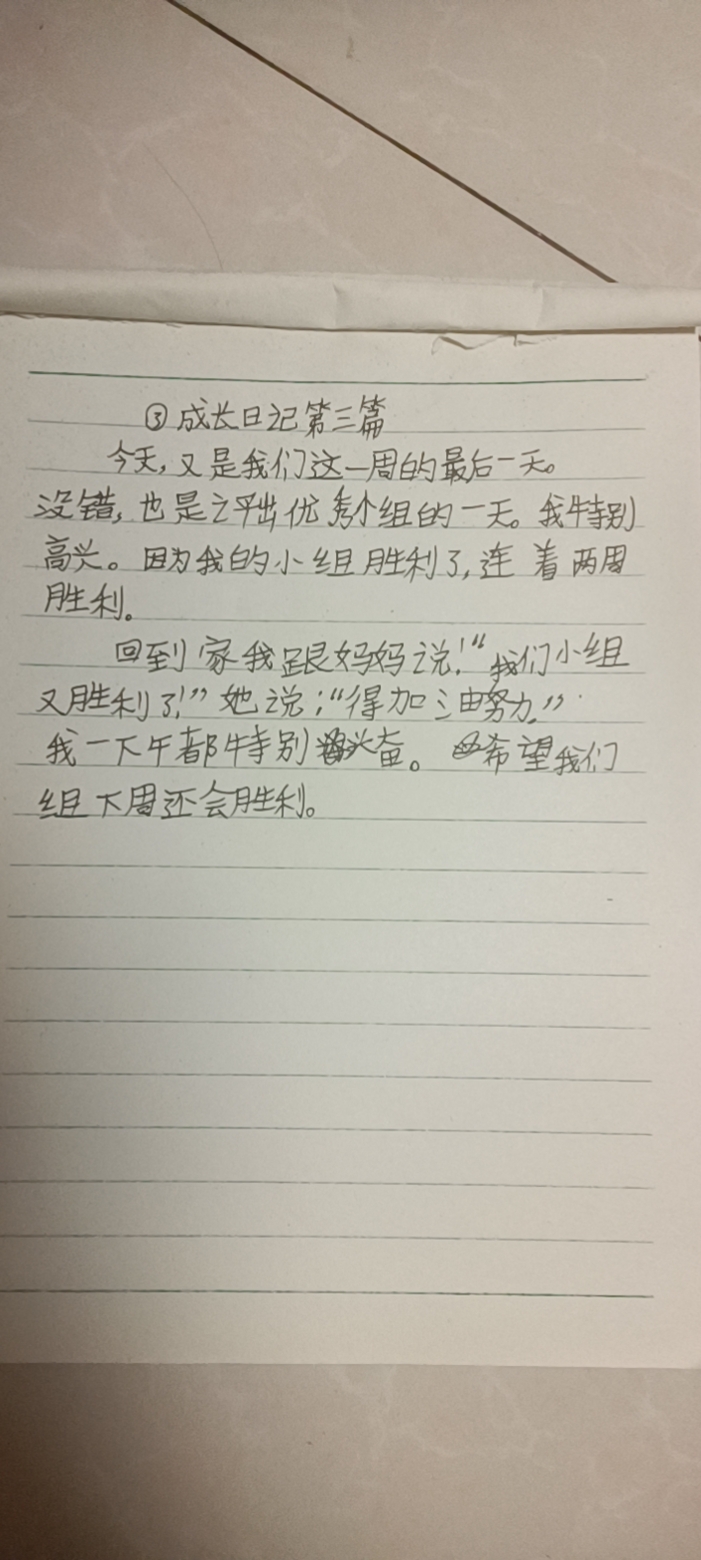 ③成长日记第三篇
今天,又是我们这一周的最后一天。
没错,也是评出优秀小组的一天。我特别
高兴。因为我的小组胜利了,连着两周
胜利。
回到家我跟妈妈说!“我们小组
又胜利了!”她说:“得加油努力。”
我一下午都特别兴奋。希望我们
组下周还会胜利。